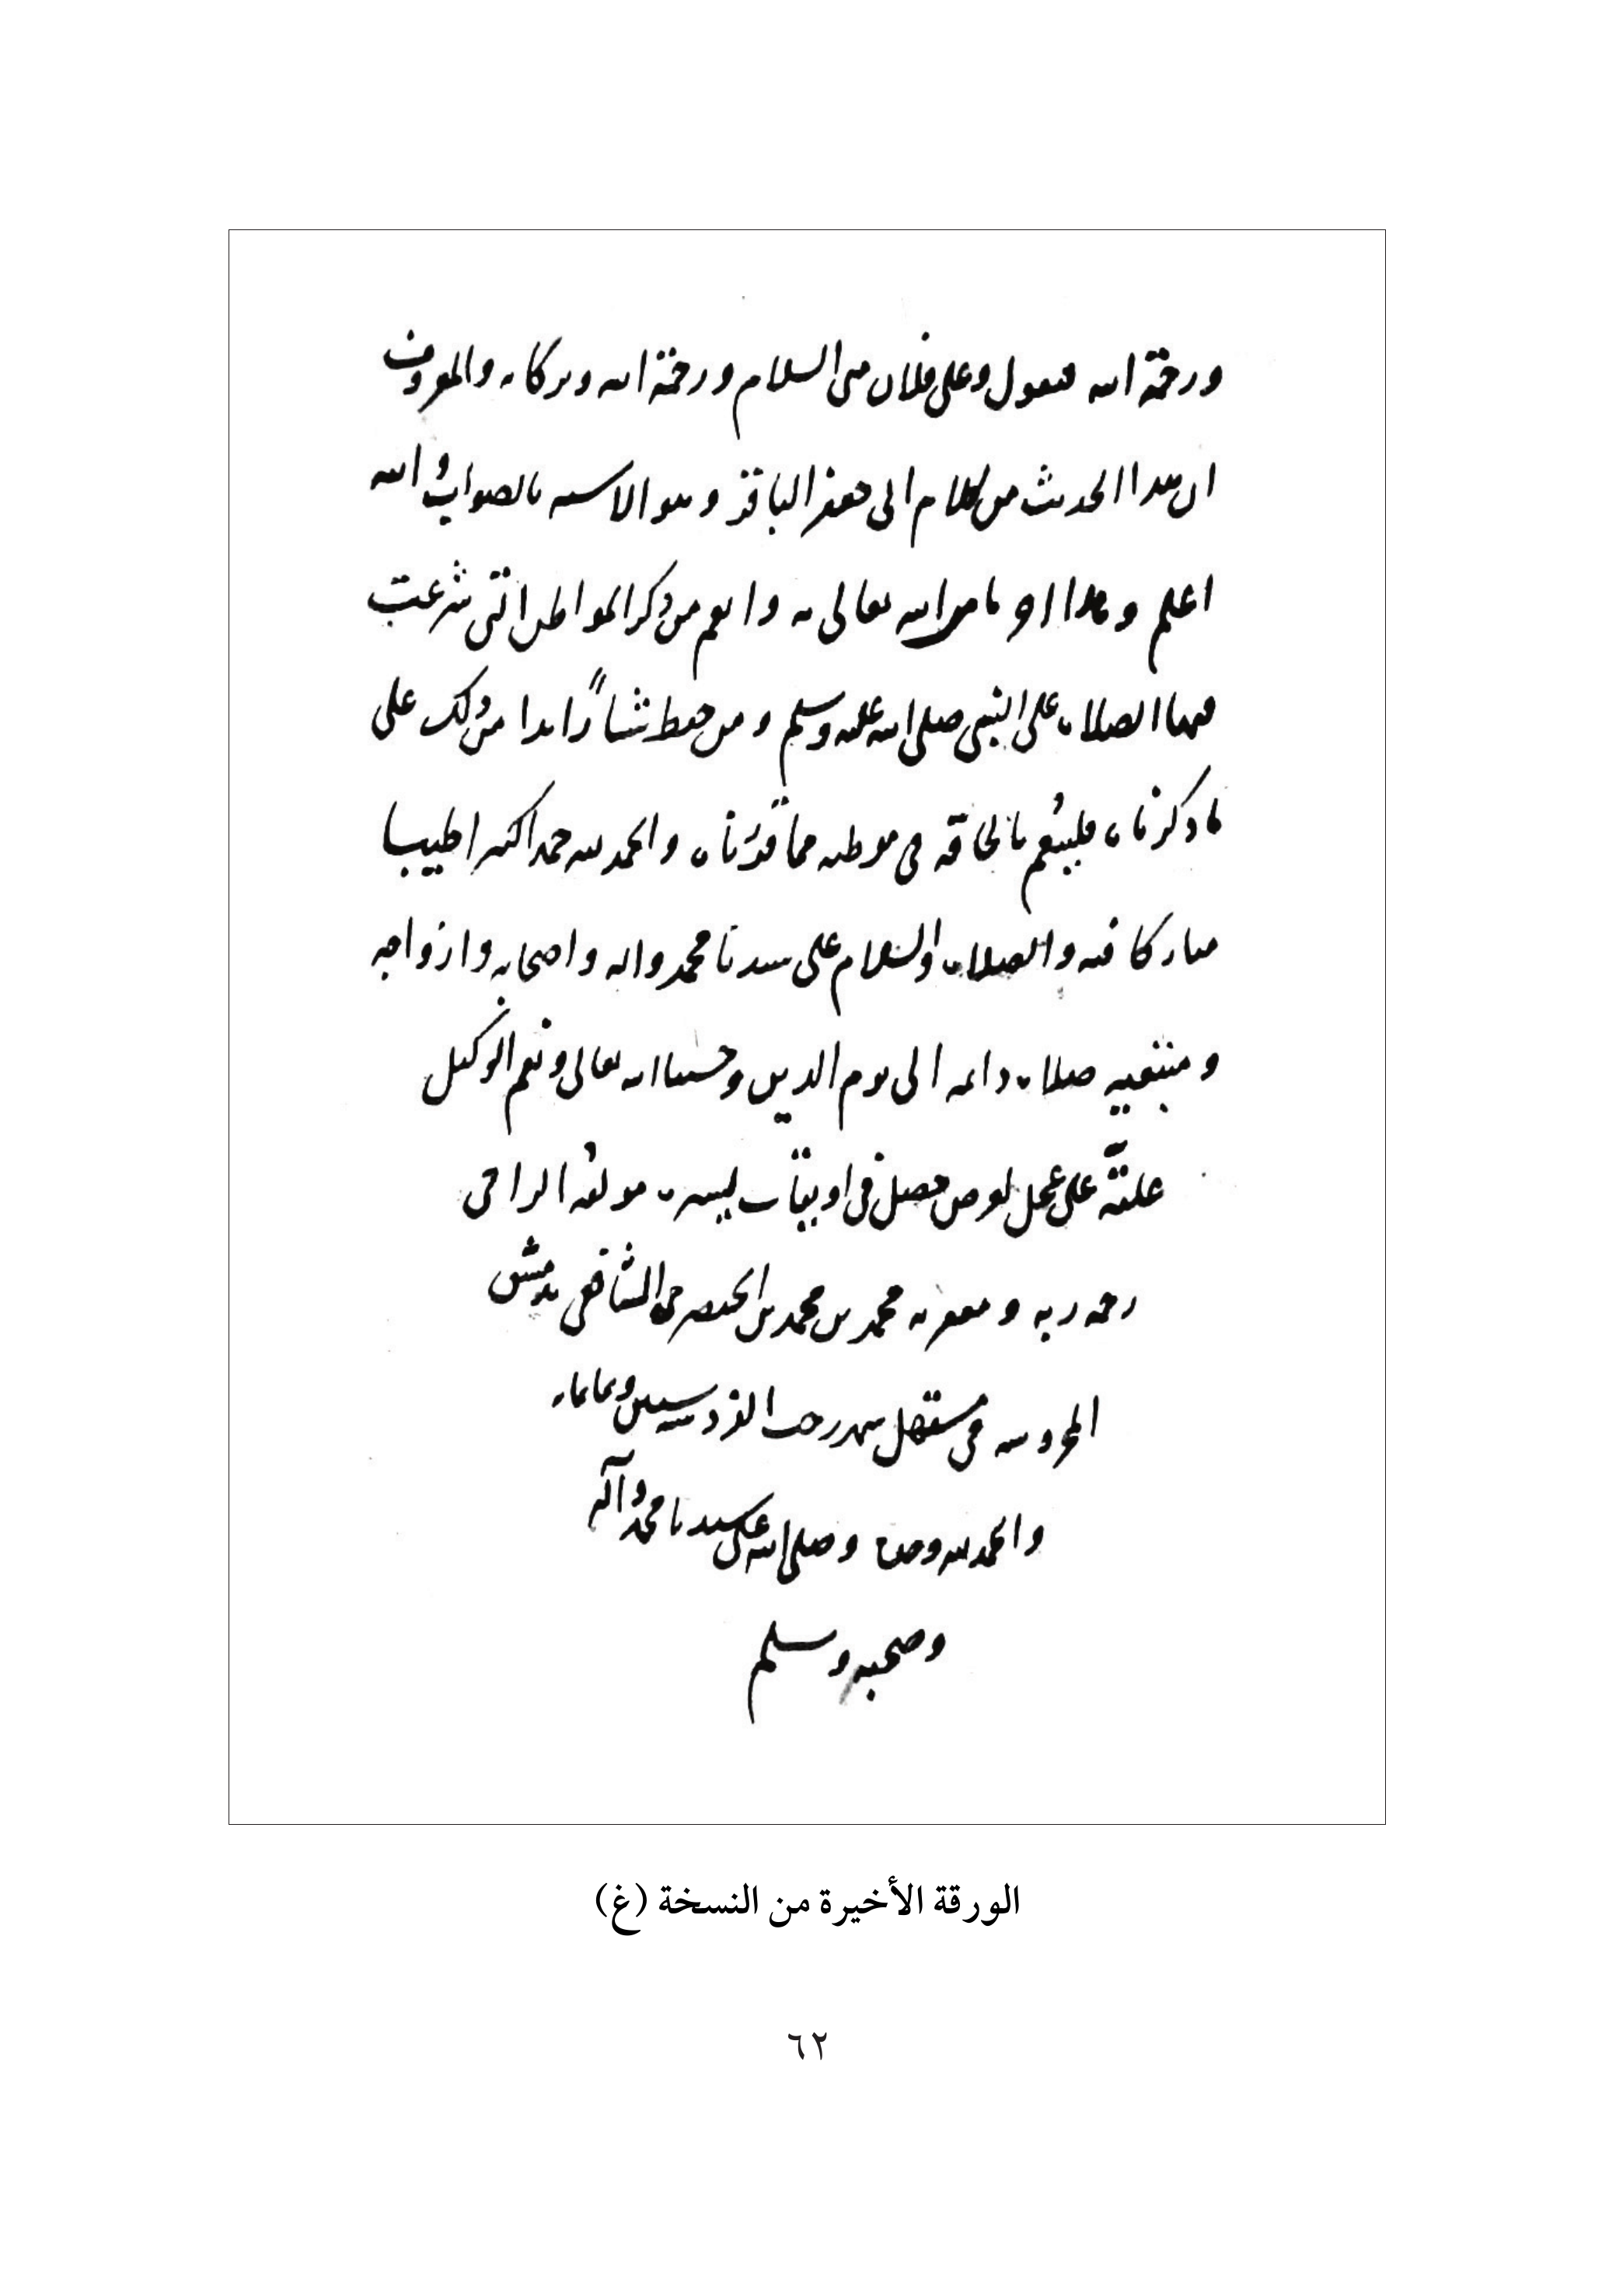 ورحمة الله فيقول وعلى فلان مني السلام ورحمة الله وبركاته والمعروف
ان هذا الحديث من كلام ابي جعفر الباقر وهو الاشبه بالصواب والله
اعلم وهذا اخر ما من الله تعالى به وانعم من ذكر المواطن التي شرعت
فيها الصلاة على النبي صلى الله عليه وسلم ومن حفظ شيئا زائدا من ذلك على
ما ذكرناه فلينعم بالحاقه في موطنه مما قررناه والحمد لله حمدا كثيرا طيبا
مباركا فيه والصلاة والسلام على سيدنا محمد واله واصحابه وازواجه
ومتبعيه صلاة دائمة الى يوم الدين وحسبنا الله تعالى ونعم الوكيل
علقه على عجل لعوض حصل في اويقات يسيرة مولفه الراجي
رحمة ربه ومغفرته محمد بن محمد بن الخيضري الشافعي بدمشق
المحروسة في مستهل شهر رجب الفرد سنة وثمانمائة
والحمد لله وحده وصلى الله على سيدنا محمد وآله
وصحبه وسلم
الورقة الأخيرة من النسخة (غ)
٦٢